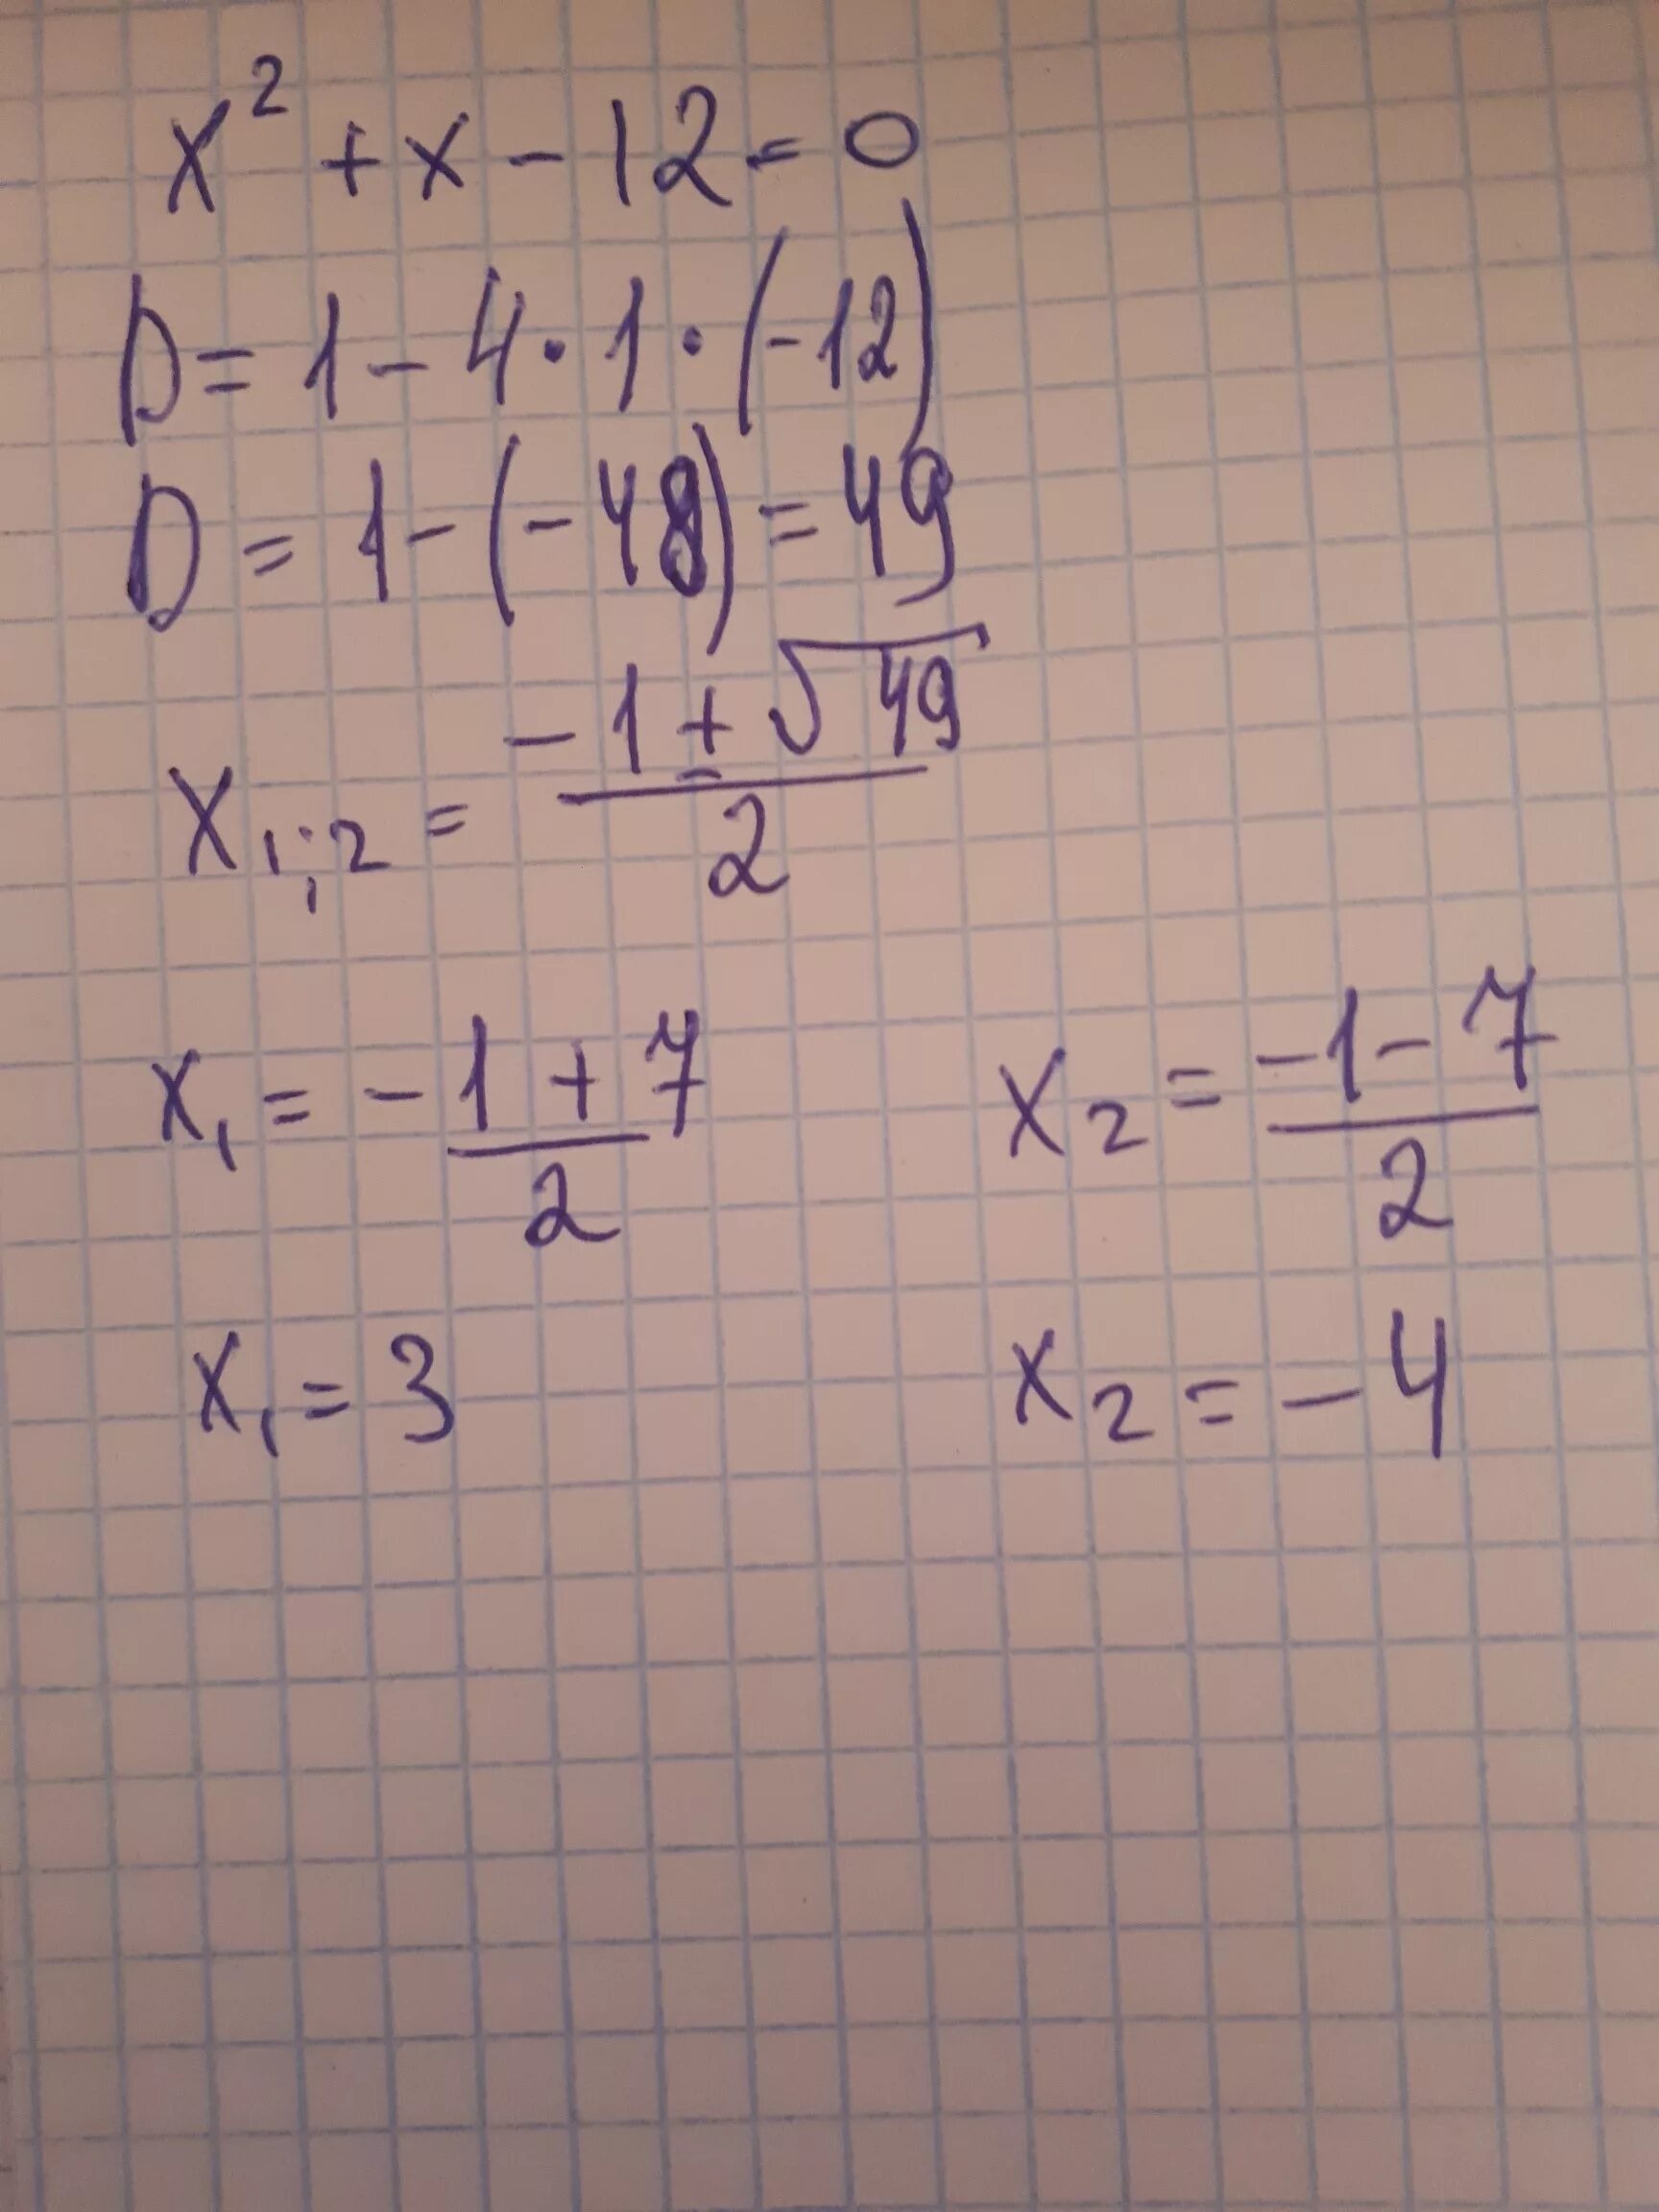 x² + x - 12 = 0
D = 1 - 4 · 1 · (-12)
D = 1 - (-48) = 49
x₁;₂ = (-1 ± √49) / 2
x₁ = (-1 + 7) / 2    x₂ = (-1 - 7) / 2
x₁ = 3    x₂ = -4